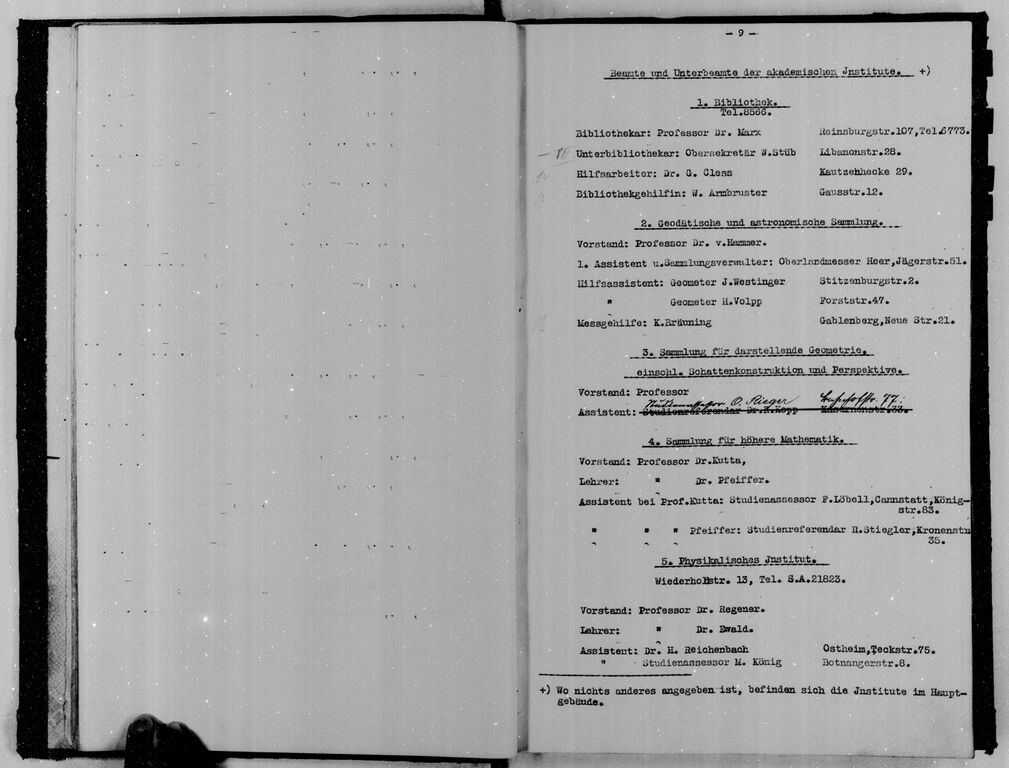 - 9 -
Beamte und Unterbeamte der akademischen Jnstitute. +)
1. Bibliothek.
Tel.8566.
Bibliothekar: Professor Dr. Marx Reinsburgstr.107,Tel.6773.
Unterbibliothekar: Obersekretär W.Stüb Libanonstr.28.
Hilfsarbeiter: Dr. G. Cless Kautzenhecke 29.
Bibliothekgehilfin: W. Armbruster Gausstr.12.
2. Geodätische und astronomische Sammlung.
Vorstand: Professor Dr. v.Hammer.
1. Assistent u.Sammlungsverwalter: Oberlandmesser Heer,Jägerstr.51.
Hilfsassistent: Geometer J.Westinger Stitzenburgstr.2.
" Geometer H.Volpp Forststr.47.
Messgehilfe: K.Bräuning Gablenberg,Neue Str.21.
3. Sammlung für darstellende Geometrie,
einschl. Schattenkonstruktion und Perspektive.
Vorstand: Professor
Studienassessor O. Rieger 77.
Assistent: Studienreferendar Dr.K.Kopp Kasernenstr.33.
4. Sammlung für höhere Mathematik.
Vorstand: Professor Dr.Kutta,
Lehrer: " Dr. Pfeiffer.
Assistent bei Prof.Kutta: Studienassessor F.Löbell,Cannstatt,König-
str.83.
" " " Pfeiffer: Studienreferendar R.Stiegler,Kronenstr
35.
5. Physikalisches Jnstitut.
Wiederholdstr. 13, Tel. S.A.21823.
Vorstand: Professor Dr. Regener.
Lehrer: " Dr. Ewald.
Assistent: Dr. H. Reichenbach Ostheim,Teckstr.75.
" Studienassessor M. König Botnangerstr.8.
+) Wo nichts anderes angegeben ist, befinden sich die Jnstitute im Haupt-
gebäude.